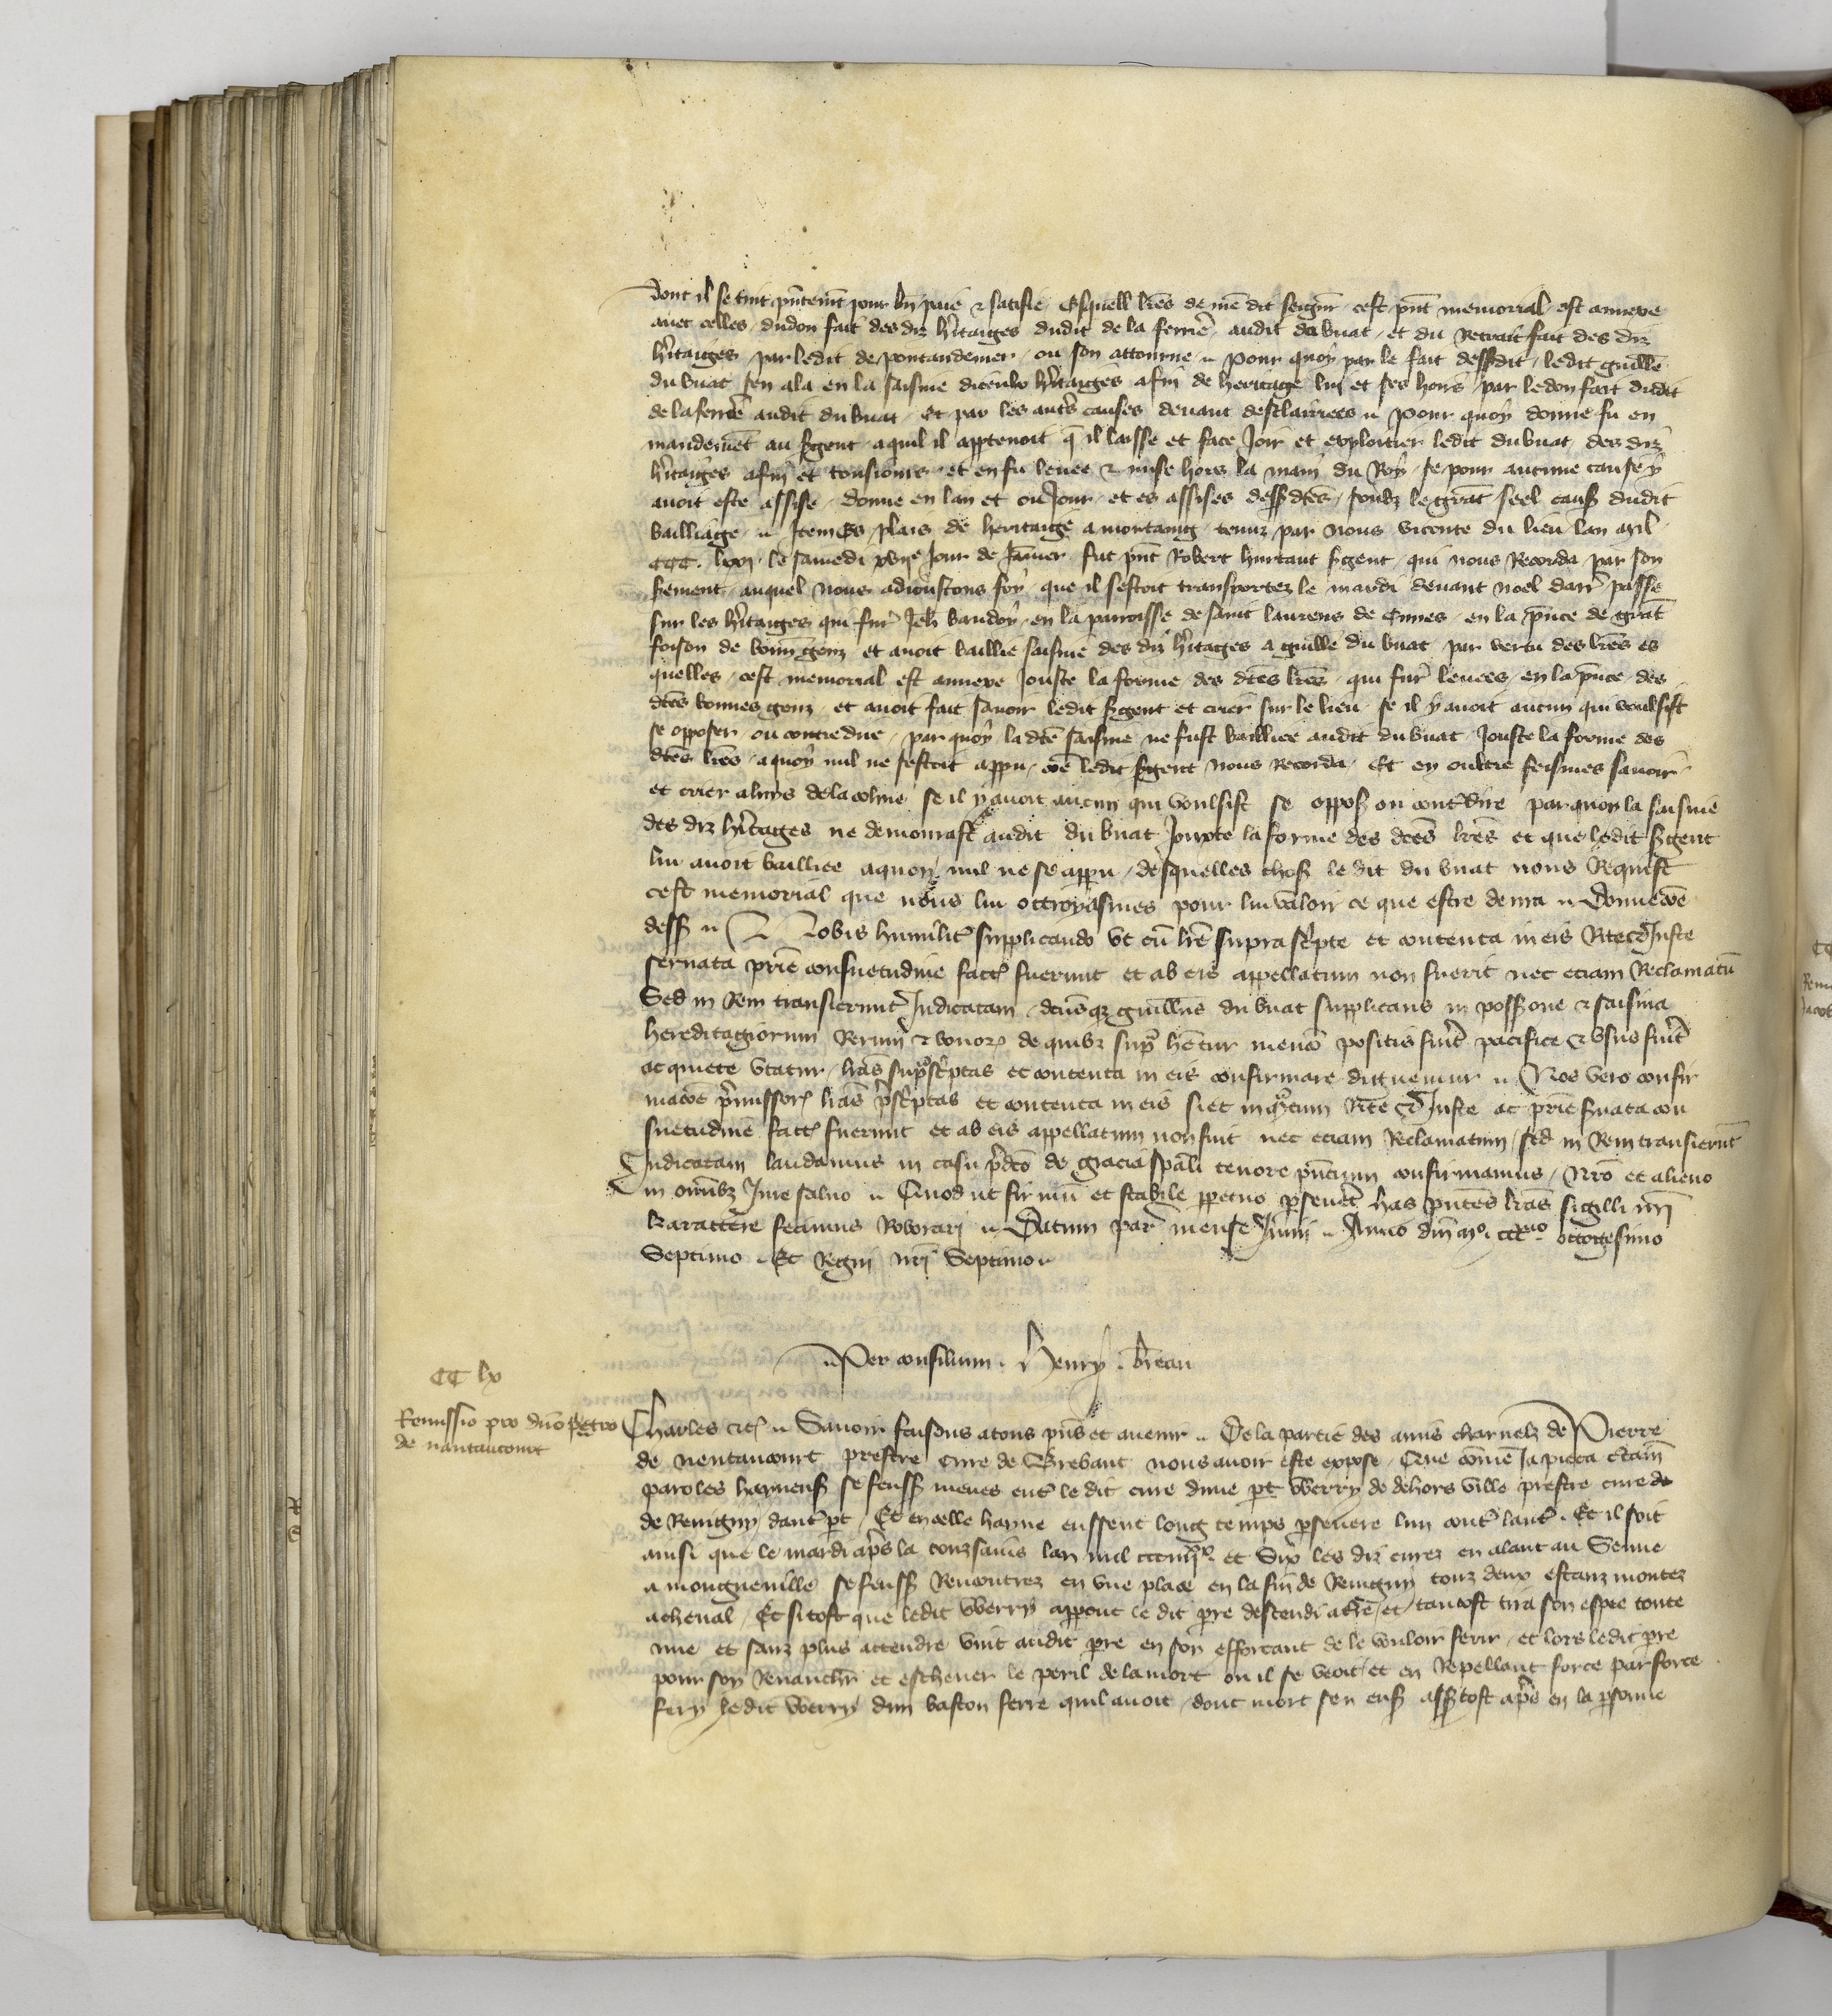 dont il se tint pñtemẽt pour bñ paie & satisfie Esquell lr̃es de mõ dit seignr̃ cest pñt memorial est annexe
avec celles dudon fait des diz h̾itaiges dudit de la ferrie᷑ audit du buat et du Retrait fait des diz
h̾itaiges par ledit de pontaudemer ou son attourne pour quoy par le fait dessdit ledit guille᷑
du buat sen ala en la saisine diceulx h̾itaiges afin de heritage lui et ses hoirs par ledon fait dudit
de la ferrie᷑ audit du buat Et par les autr̃s causes devant desclairees pour quoy donne fu en
mandemẽt au s̃gent aquil il app̃tenoit q̃ il laisse et face Joir et exploitier ledit du buat des diz
h̾itaiges afin et tousiours et en fu levee & mise hors la main du Roy se pour aucune cause y
avoit este assise donne en lan et ou Jour et es assises dessdtẽs soubz le grãt seel causs dudit
bailliage Item Es plais de heritaige a mortaing tenuz par Nous viconte du lieu lan mil
CCC. lxxj le samedi xviije Jour de Jãvier fut pñt Robert hurtaut s̃gent qui nous Recorda par son
s̃ement auquel Nous adioustons foy que il sestoit transportez le mardi devant noel darr̃ passe
sur les h̾itaiges qui fur̃ Jeh̃ baudoy en la parroisse de saint laurens de Cuves en la p̃nce de grãt
foison de bonñ genz et avoit baillie saisine des diz h̾itages a guille᷑ du buat par vertu des lr̃es es
quelles cest memorial est annexe Jouste la forme des dtẽs lr̃es qui fur̃ leuees en la p̃nce des
dtẽs bonnes genz et avoit fait savoir ledit s̃gent et crier sur le lieu se il y avoit aucun qui voulsist
se opposer ou contredire par quoy la dtẽ saisine ne fust bailliee audit du buat Jouste la forme des
dtẽs lr̃es a quoy nul ne sestoit apparu cõe ledit s̃gent Nous Recorda Et en oultre feismes savoir
et crier aluys de la cohue se il y avoit aucun qui voulsist se opposs ou cont̃dire parquoy la saisine
des diz h̾itages ne demourast audit du buat Jouxte la forme des dtẽs lr̃es et que ledit s̃gent
lui avoit bailliee aquoy nul ne se apparu desquelles choss le dit du buat nous Requist
cest memorial que nous lui ottroyasmes pour lui valoir ce que estre devra Donne cõe
dess Nobis humilit̃ supplicando ut cũ lr̃e suprasc̃pte et contenta in eis Rite & Juste
servata pr̃ie consuetudine factꝫ fuerunt et ab eis appellatum non fuerit nec eciam Reclamatũ
Sed in Rem transierunt Judicatam dcũsqꝫ guillũs du buat supplicans in possone & saisina
hereditagiorum Rerum & bonoꝝ de quibꝫ sup̃ hẽtur mencõ positis fuit̃ pacifice & usus fuit̃
ac quiete utatur lrãs sup̃sc̃ptas et contenta in eis confirmare dignemur Nos vero confir
macõe p̃missoꝝ lrãs p̃sc̃ptas et contenta in eis sicut in q̃ntum Rite & Juste ac pr̃ie s̃vata con
suetudine factꝫ fuerunt et ab eis appellatum non fuit nec eciam Reclamatum sed in Rem transierũt
Judicatam laudamus in casu p̃dcõ de gracia spãli tenore pñcium confirmamus Nrõ et alieno
in omĩbꝫ Jure salvo Quod ut firmũ et stabile ppetuo p̃sevet̃ has pñtes lrãs sigilli nr̃i
karactere fecimus Roborari Datum par̃ mense Junii Anno dñi mᵒ. cccmo octogesimo
Septimo Et Regni nr̃i Septimo
Per consilium. Henry. breau
CC lx
Remissio pro dño petro
de nantaucourt
Charles etcꝫ Savoir faisons atous pñs et avenir De la partie des amis charnelz de Pierre
de nentaucourt prestre cure de Brebant nous avoir este expose Que cõme Ja pieca ctaiñ
paroles hayneuss se feuss meues ent̃ le dit cure dune pt̃ werry de dehors ville prestre cure de
de Remigny daut̃ pt̃ Et en celle hayne eussent long temps p̃severe lun cont̃ laut̃ Et il soit
ainsi que le mardi ap̃s la touzsains lan mil ccciiijxx et Six les diz curez en alant au Senne
a mongueuille se feuss Rencontrez en une place en la fin de Remigny touz deux estanz montez
acheval Et si tost que ledit werry apparceut le dit p̃re descendi at̃re et tantost tira son espee toute
nue et sanz plus attendre vint audit p̃re en soy efforcant de le vouloir ferir et lors ledit p̃re
pour soy Revanchr̃ et eschever le peril de la mort ou il se veoit et en Repellant force par force
fery ledit werry dun baston ferre quil avoit dont mort sen enss asss tost ap̃s en la p̃sonne